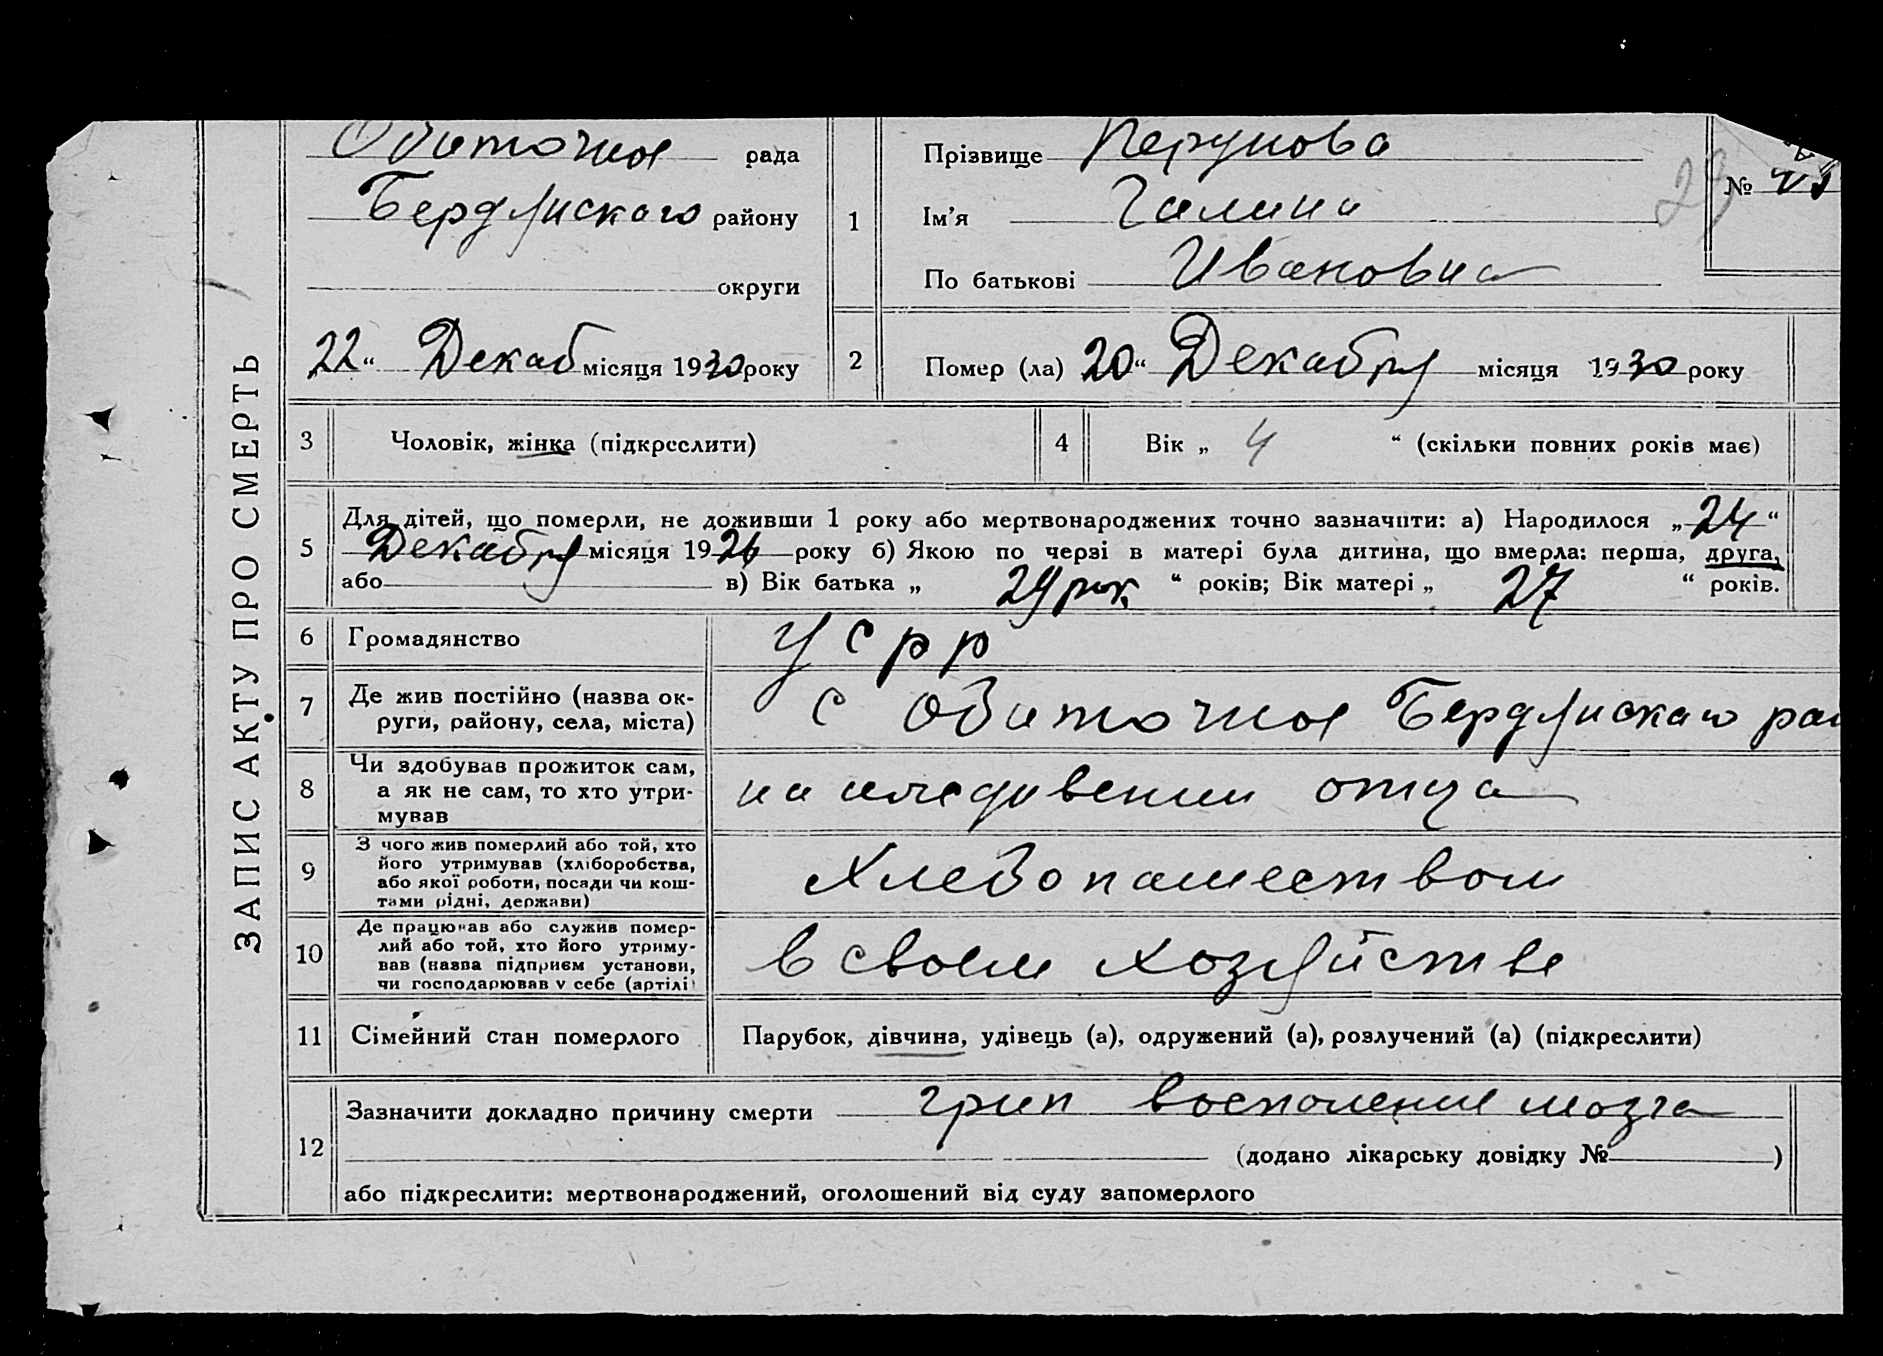 ЗАПИС АКТУ ПРО СМЕРТЬ
Обиточная рада
Бердянскаго району
округи
22 “ Декаб місяця 1930 року
1
Прізвище Перунова
Ім’я Галина
По батькові Ивановна
29
№
2
Помер (ла) 20 “ Декабря місяця 1930 року
3 Чоловік, жінка (підкреслити)
4 Вік „ 4 “ (скільки повних років має)
5
Для дітей, що померли, не доживши 1 року або мертвонароджених точно зазначити: а) Народилося „ 24 “
Декабря місяця 1926 року б) Якою по черзі в матері була дитина, що вмерла: перша, друга,
або в) Вік батька „ 29 рок “ років; Вік матері „ 27 “ років.
6 Громадянство УСРР
7 Де жив постійно (назва ок-
руги, району, села, міста)
с Обиточная Бердянскаго рай
8 Чи здобував прожиток сам,
а як не сам, то хто утри-
мував
на иждивении отца
9 З чого жив померлий або той, хто
його утримував (хліборобства,
або якої роботи, посади чи кош-
тами рідні, держави)
Хлебопашеством
10 Де працював або служив помер-
лий або той, хто його утриму-
вав (назва підприєм установи,
чи господарював у себе (артілі)
в своем хозяйстве
11 Сімейний стан померлого Парубок, дівчина, удівець (а), одружений (а), розлучений (а) (підкреслити)
12
Зазначити докладно причину смерти грип воспаление мозга
(додано лікарську довідку № )
або підкреслити: мертвонароджений, оголошений від суду запомерлого